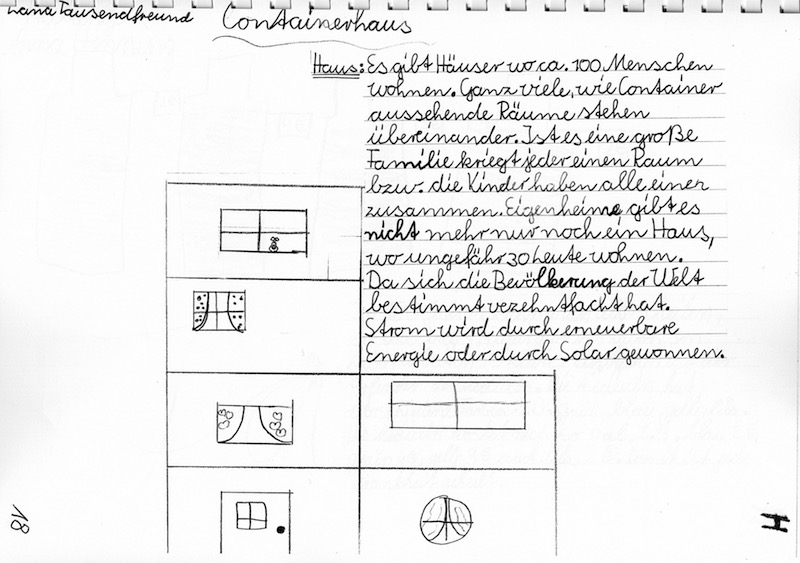 Lana Tausendfreund
Containerhaus
Haus: Es gibt Häuser wo ca. 100 Menschen
wohnen. Ganz viele, wie Container
aussehende Räume stehen
übereinander. Ist es eine große
Familie kriegt jeder einen Raum
bzw. die Kinder haben alle einen
zusammen. Eigenheime gibt es
nicht mehr nur noch ein Haus,
wo ungefähr 30 Leute wohnen.
Da sich die Bevölkerung der Welt
bestimmt vezehntfacht hat.
Strom wird durch erneuerbare
Energie oder durch Solar gewonnen.
18
H